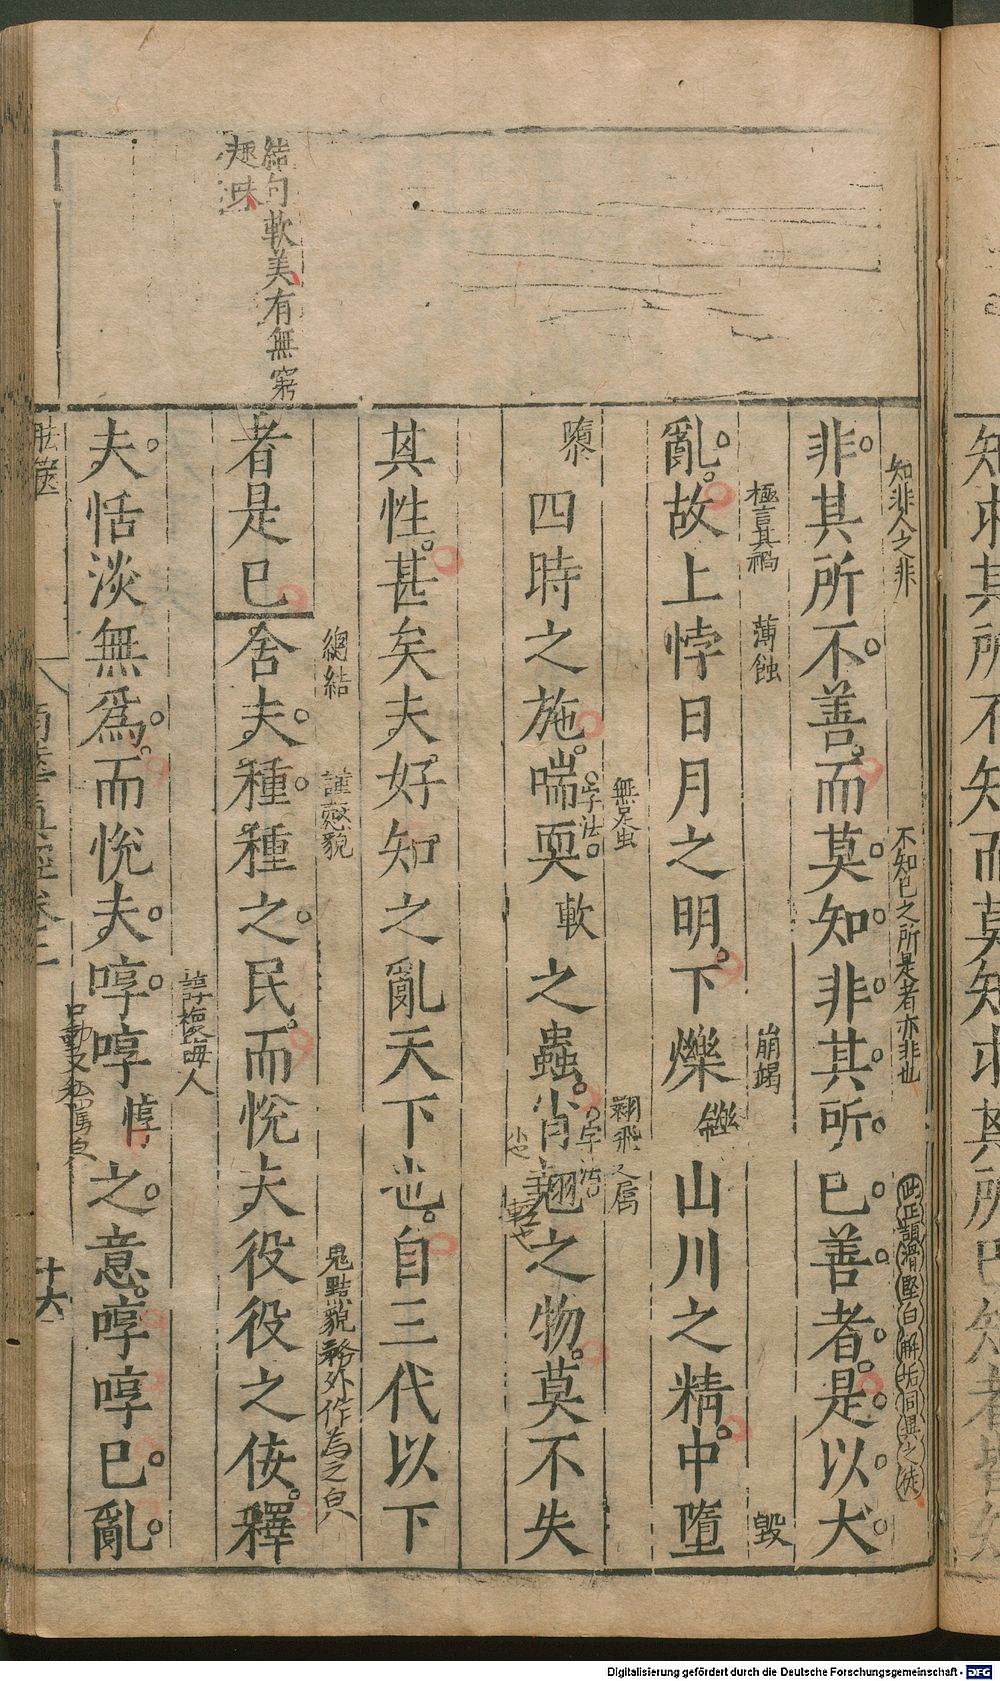 結句軟美有無窮
趣味
知非人之非
不知已之所是者亦非也
此正頡滑堅白解垢同異之徒
非其所不善而莫知非其所已善者是以大
極言其禍
薄蝕
崩竭
毀
亂故上悖日月之明下爍鑠山川之精中墮
無足虫
翾飛之屬
隳四時之施喘耎軟之蟲肖翹之物莫不失
字法
字法
小也
輕也
其性甚矣夫好知之亂天下也自三代以下
總結
謹慤貌
鬼黠貌務外作為之皃
者是已舍夫種種之民而悅夫役役之佞釋
諄復誨人
夫恬淡無爲而悅夫啍啍惇之意啍啍已亂
胠篋
南華真經卷二
十六
知求其所不知而莫知求其所已知者皆知
Digitalisierung gefördert durch die Deutsche Forschungsgemeinschaft - DFG